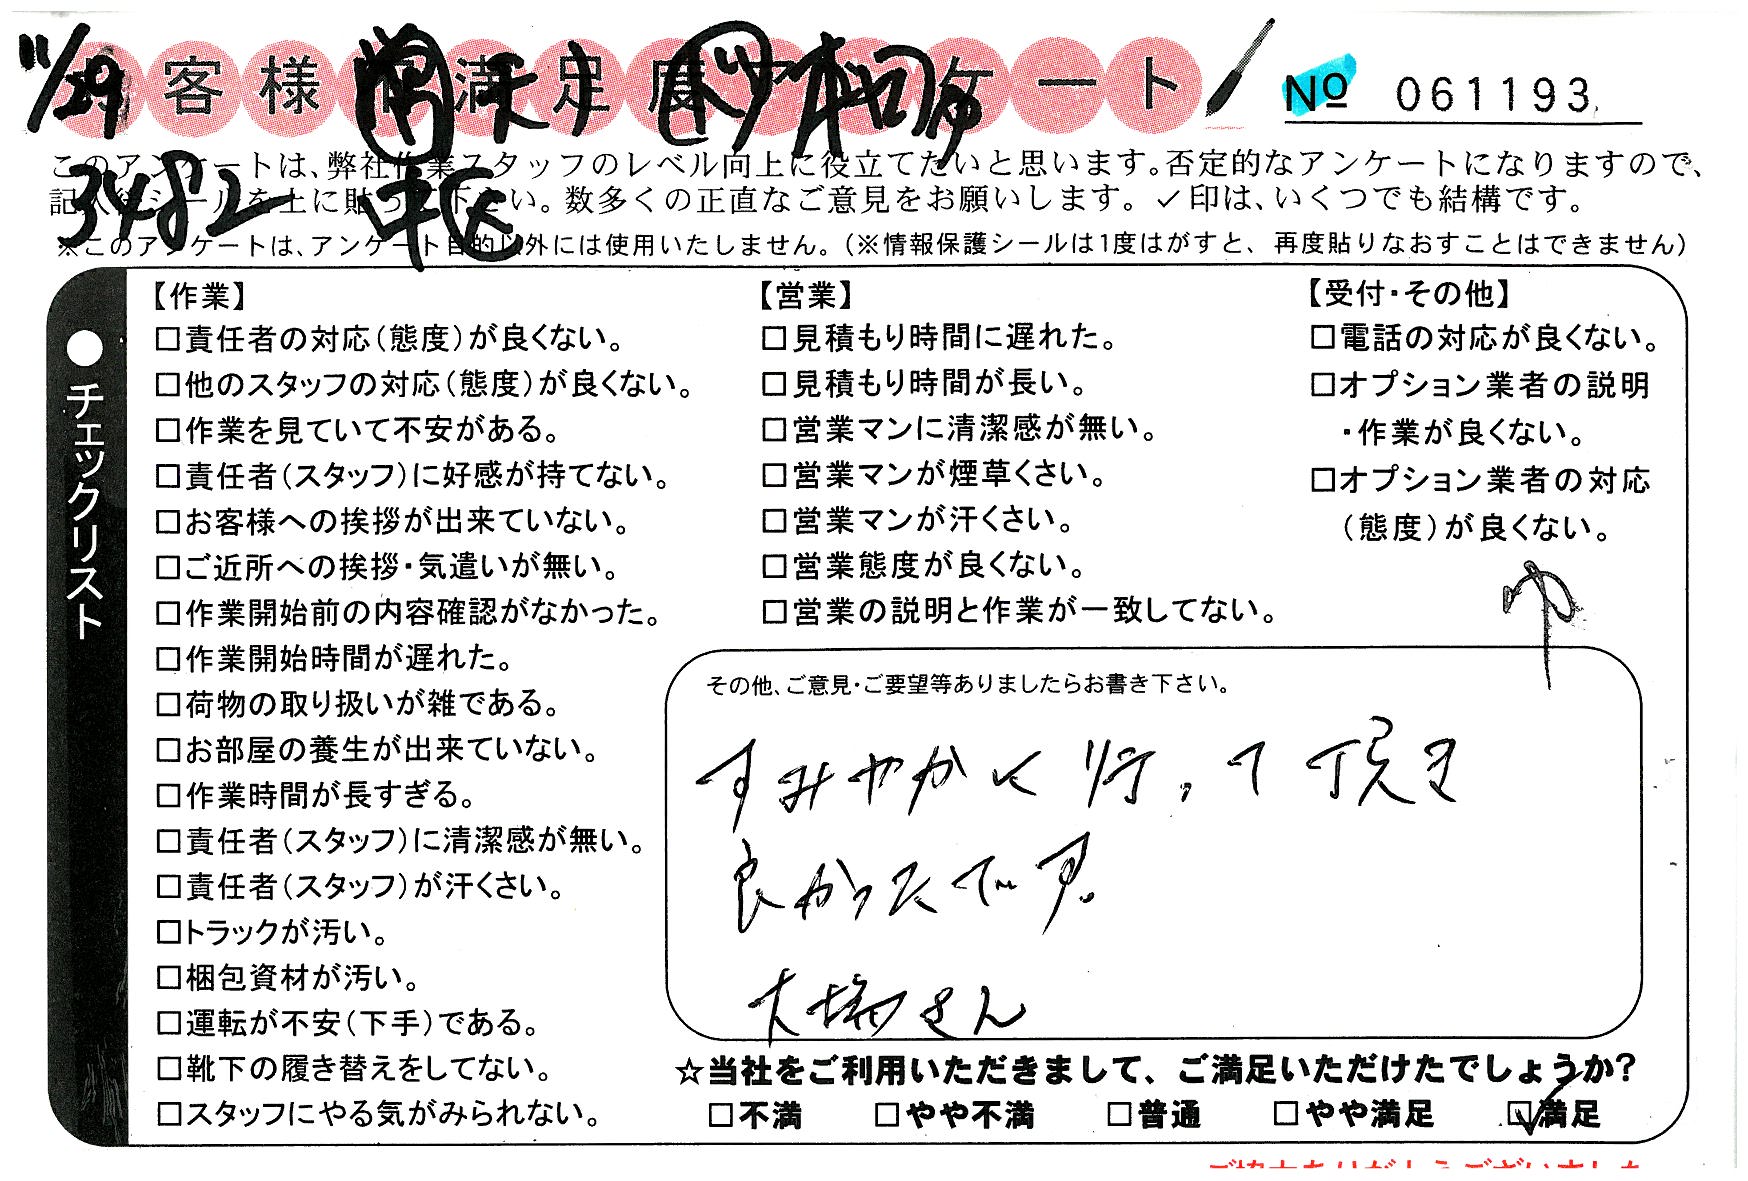 11/29
お客様ご満足度アンケート
№ 061193
このアンケートは、弊社作業スタッフのレベル向上に役立てたいと思います。否定的なアンケートになりますので、
3482
記入後シールを上に貼って下さい。数多くの正直なご意見をお願いします。✓印は、いくつでも結構です。
※このアンケートは、アンケート目的以外には使用いたしません。(※情報保護シールは1度はがすと、再度貼りなおすことはできません)
●チェックリスト
【作業】
□責任者の対応(態度)が良くない。
□他のスタッフの対応(態度)が良くない。
□作業を見ていて不安がある。
□責任者(スタッフ)に好感が持てない。
□お客様への挨拶が出来ていない。
□ご近所への挨拶・気遣いが無い。
□作業開始前の内容確認がなかった。
□作業開始時間が遅れた。
□荷物の取り扱いが雑である。
□お部屋の養生が出来ていない。
□作業時間が長すぎる。
□責任者(スタッフ)に清潔感が無い。
□責任者(スタッフ)が汗くさい。
□トラックが汚い。
□梱包資材が汚い。
□運転が不安(下手)である。
□靴下の履き替えをしてない。
□スタッフにやる気がみられない。
【営業】
□見積もり時間に遅れた。
□見積もり時間が長い。
□営業マンに清潔感が無い。
□営業マンが煙草くさい。
□営業マンが汗くさい。
□営業態度が良くない。
□営業の説明と作業が一致してない。
【受付・その他】
□電話の対応が良くない。
□オプション業者の説明
・作業が良くない。
□オプション業者の対応
(態度)が良くない。
その他、ご意見・ご要望等ありましたらお書き下さい。
すみやかに行って頂き
良かったです。
大塲さん
☆当社をご利用いただきまして、ご満足いただけたでしょうか?
□不満 □やや不満 □普通 □やや満足 ☑満足
ご協力ありがとうございました